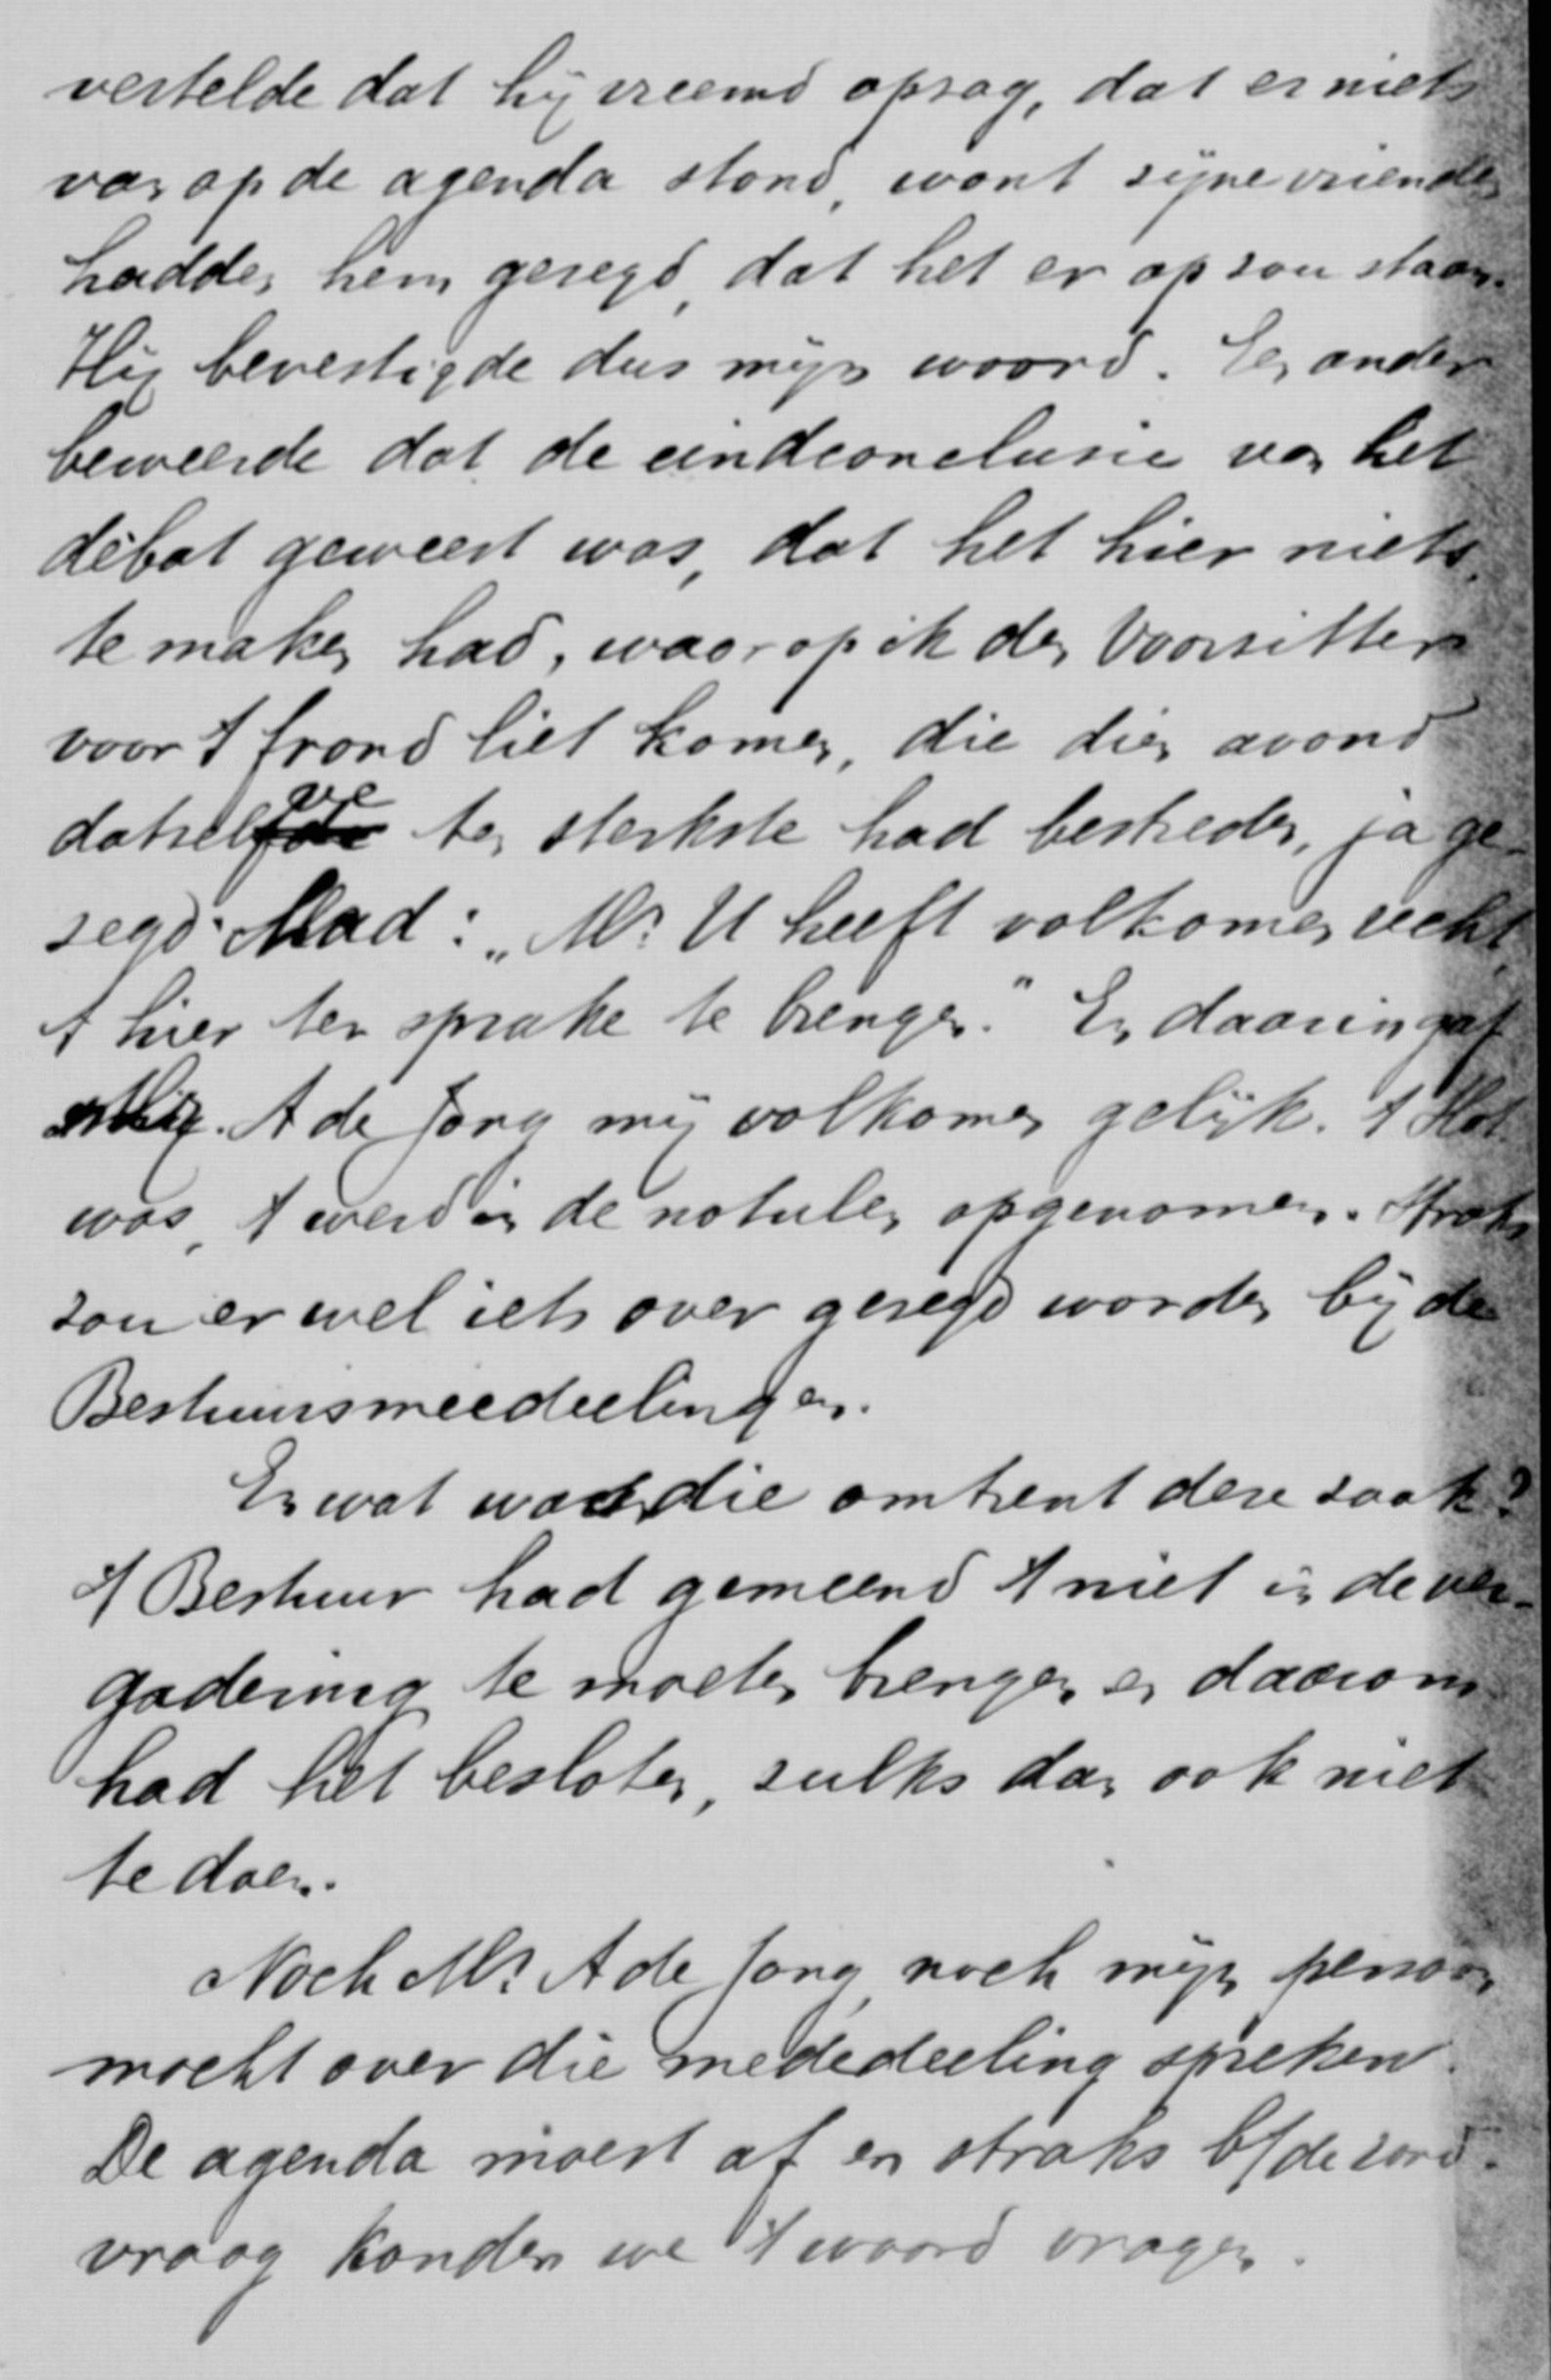 vertelde dat hij vreemd opzag, dat er niets
van op de agenda stond, want zijne vrienden
hadden hem gezegd, dat het er op zou staan.
Hij bevestigde dus mijn woord. Een ander
beweerde dat de eindconclusie van het
débat geweest was, dat het hier niets
te maken had, waarop ik den Voorzitter
voor 't frond liet komen, die dien avond
datzelfve ten sterkste had bestreden, ja ge-
zegd had: „Mr. U heeft volkomen recht
't hier ter sprake te brengen." En daarin gaf
A de Jong mij volkomen gelijk. 't Slot
was, 't werd in de notulen opgenomen. Straks
zou er wel iets over gezegd worden bij de
Bestuursmeedeelingen.
En wat was die omtrent deze zaak?
't Bestuur had gemeend 't niet in de ver-
gadering te moeten brengen en daarom
had het besloten, zulks dan ook niet
te doen.
Noch Mr. A de Jong, noch mijn persoon
mocht over die mededeeling spreken.
De agenda moest af en straks b/de rond-
vraag konden we 't woord vragen.